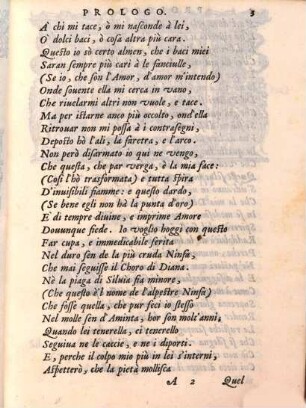 PROLOGO. 3
A' chi mi tace, ò mi nasconde à lei,
O' dolci baci, ò cosa altra più cara.
Questo io sò certo almen, che i baci miei
Saran sempre più cari à le fanciulle,
(Se io, che son l'Amor, d'amor m'intendo)
Onde souente ella mi cerca in vano,
Che riuelarmi altri non vuole, e tace.
Ma per istarne anco più occolto, ond'ella
Ritrouar non mi possa à i contrasegni,
Deposto hò l'ali, la faretra, e l'arco.
Non però disarmato io qui ne vengo,
Che questa, che par verga, è la mia face:
(Così l'hò trasformata) e tutta spira
D'inuisibili fiamme: e questo dardo,
(Se bene egli non hà la punta d'oro)
E' di tempre diuine, e imprime Amore
Douunque fiede. Io voglio hoggi con questo
Far cupa, e immedicabile ferita
Nel duro sen de la più cruda Ninfa,
Che mai seguisse il Choro di Diana.
Nè la piaga di Siluia fia minore,
(Che questo è'l nome de l'alpestre Ninfa)
Che fosse quella, che pur feci io stesso
Nel molle sen d'Aminta, hor son molt'anni,
Quando lei tenerella, ei tenerello
Seguiua ne le caccie, e ne i diporti.
E, perche il colpo mio più in lei s'interni,
Aspetterò, che la pietà mollisca
A 2 Quel